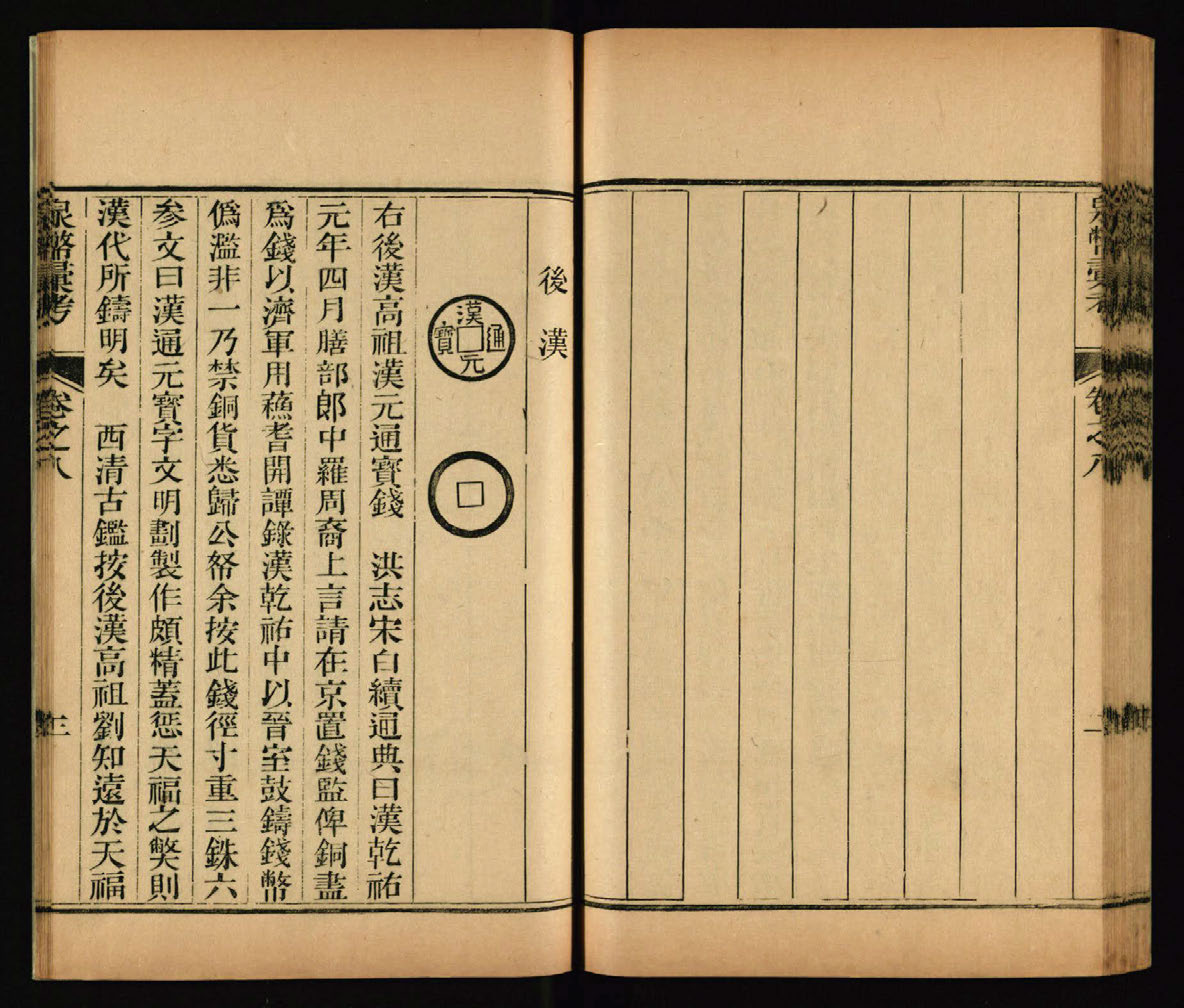 泉幣彙考
卷之八
後漢
漢元通寶
右後漢高祖漢元通寶錢　洪志宋白續通典曰漢乾祐
元年四月膳部郎中羅周裔上言請在京置錢監俾銅盡
爲錢以濟軍用蘓耆開譚錄漢乾祐中以晉室鼓鑄錢幣
僞濫非一乃禁銅貨悉歸公帑余按此錢徑寸重三銖六
參文曰漢通元寶字文明劃製作頗精蓋惩天福之獘則
漢代所鑄明矣　西清古鑑按後漢高祖劉知遠於天福
泉幣彙考
卷之八
三